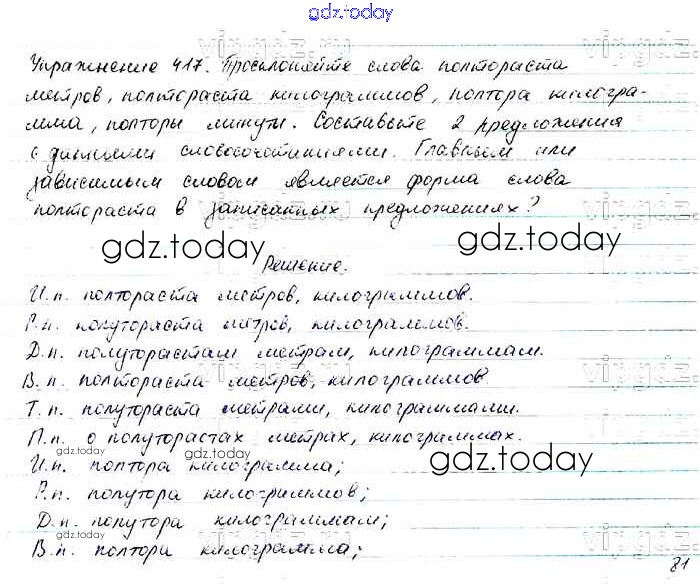 gdz.today
Упражнение 417. Просклоняйте слова полтораста
метров, полтораста килограммов, полтора килогра-
мма, полторы минуты. Составьте 2 предложения
с данными словосочетаниями. Главным или
зависимым словом является форма слова
полтораста в записанных предложениях?
gdz.today
gdz.today
Решение.
И.п. полтораста метров, килограммов.
Р.п. полутораста метров, килограммов.
Д.п. полуторастам метрам, килограммам.
В.п. полтораста метров, килограммов
Т.п. полутораста метрами, килограммами.
П.п. о полуторастах метрах, килограммах.
gdz.today
И.п. полтора килограмма;
gdz.today
Р.п. полутора килограммов;
Д.п. полутора килограммам;
gdz.today
В.п. полтора килограмма;
81